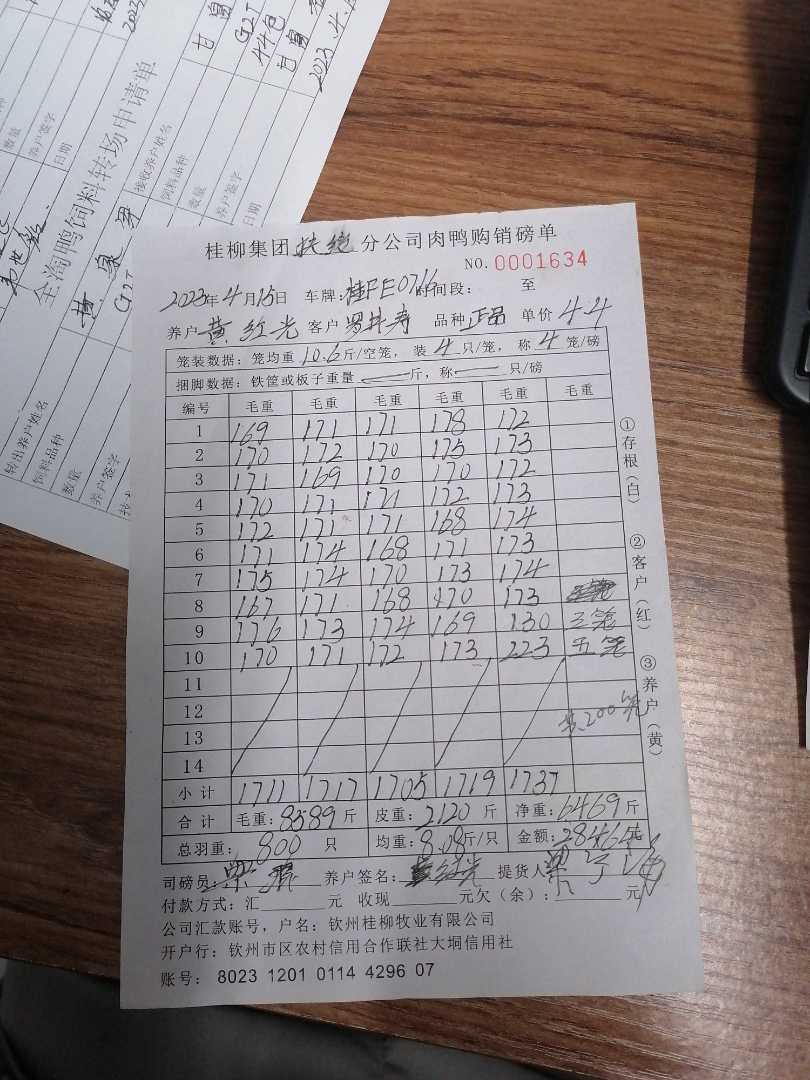 全淘鸭饲料转场申请单
接收养户姓名
饲料品种
数量
养户签字
日期
转出养户姓名
饲料品种
数量
养户签字
G2T
44包
桂柳集团扶绥分公司肉鸭购销磅单
NO. 0001634
2023年4月15日 车牌:桂FE0716 时间段: 至
养户 黄红光 客户 品种 正品 单价 4.4
笼装数据:笼均重 10.6 斤/空笼,装 4 只/笼,称 4 笼/磅
捆脚数据:铁筐或板子重量 — 斤,称 — 只/磅
编号 毛重 毛重 毛重 毛重 毛重 毛重
1 169 171 171 178 172
2 170 172 170 175 173
3 171 169 170 170 172
4 170 171 171 172 173
5 172 171 171 168 174
6 171 174 168 171 173
7 175 174 170 173 174
8 167 171 168 170 173
9 176 173 174 169 130 三笼
10 170 171 172 173 223 五笼
11
12 共200笼
13
14
小计 1711 1717 1705 1719 1737
合计 毛重:8589斤 皮重:2120斤 净重:6469斤
总羽重:800 只 均重:8.08斤/只 金额:28464元
司磅员: 养户签名:黄红光 提货人
付款方式:汇 元 收现 元欠(余): 元
公司汇款账号,户名:钦州桂柳牧业有限公司
开户行:钦州市区农村信用合作联社大垌信用社
账号:8023 1201 0114 4296 07
①存根(白)
②客户(红)
③养户(黄)